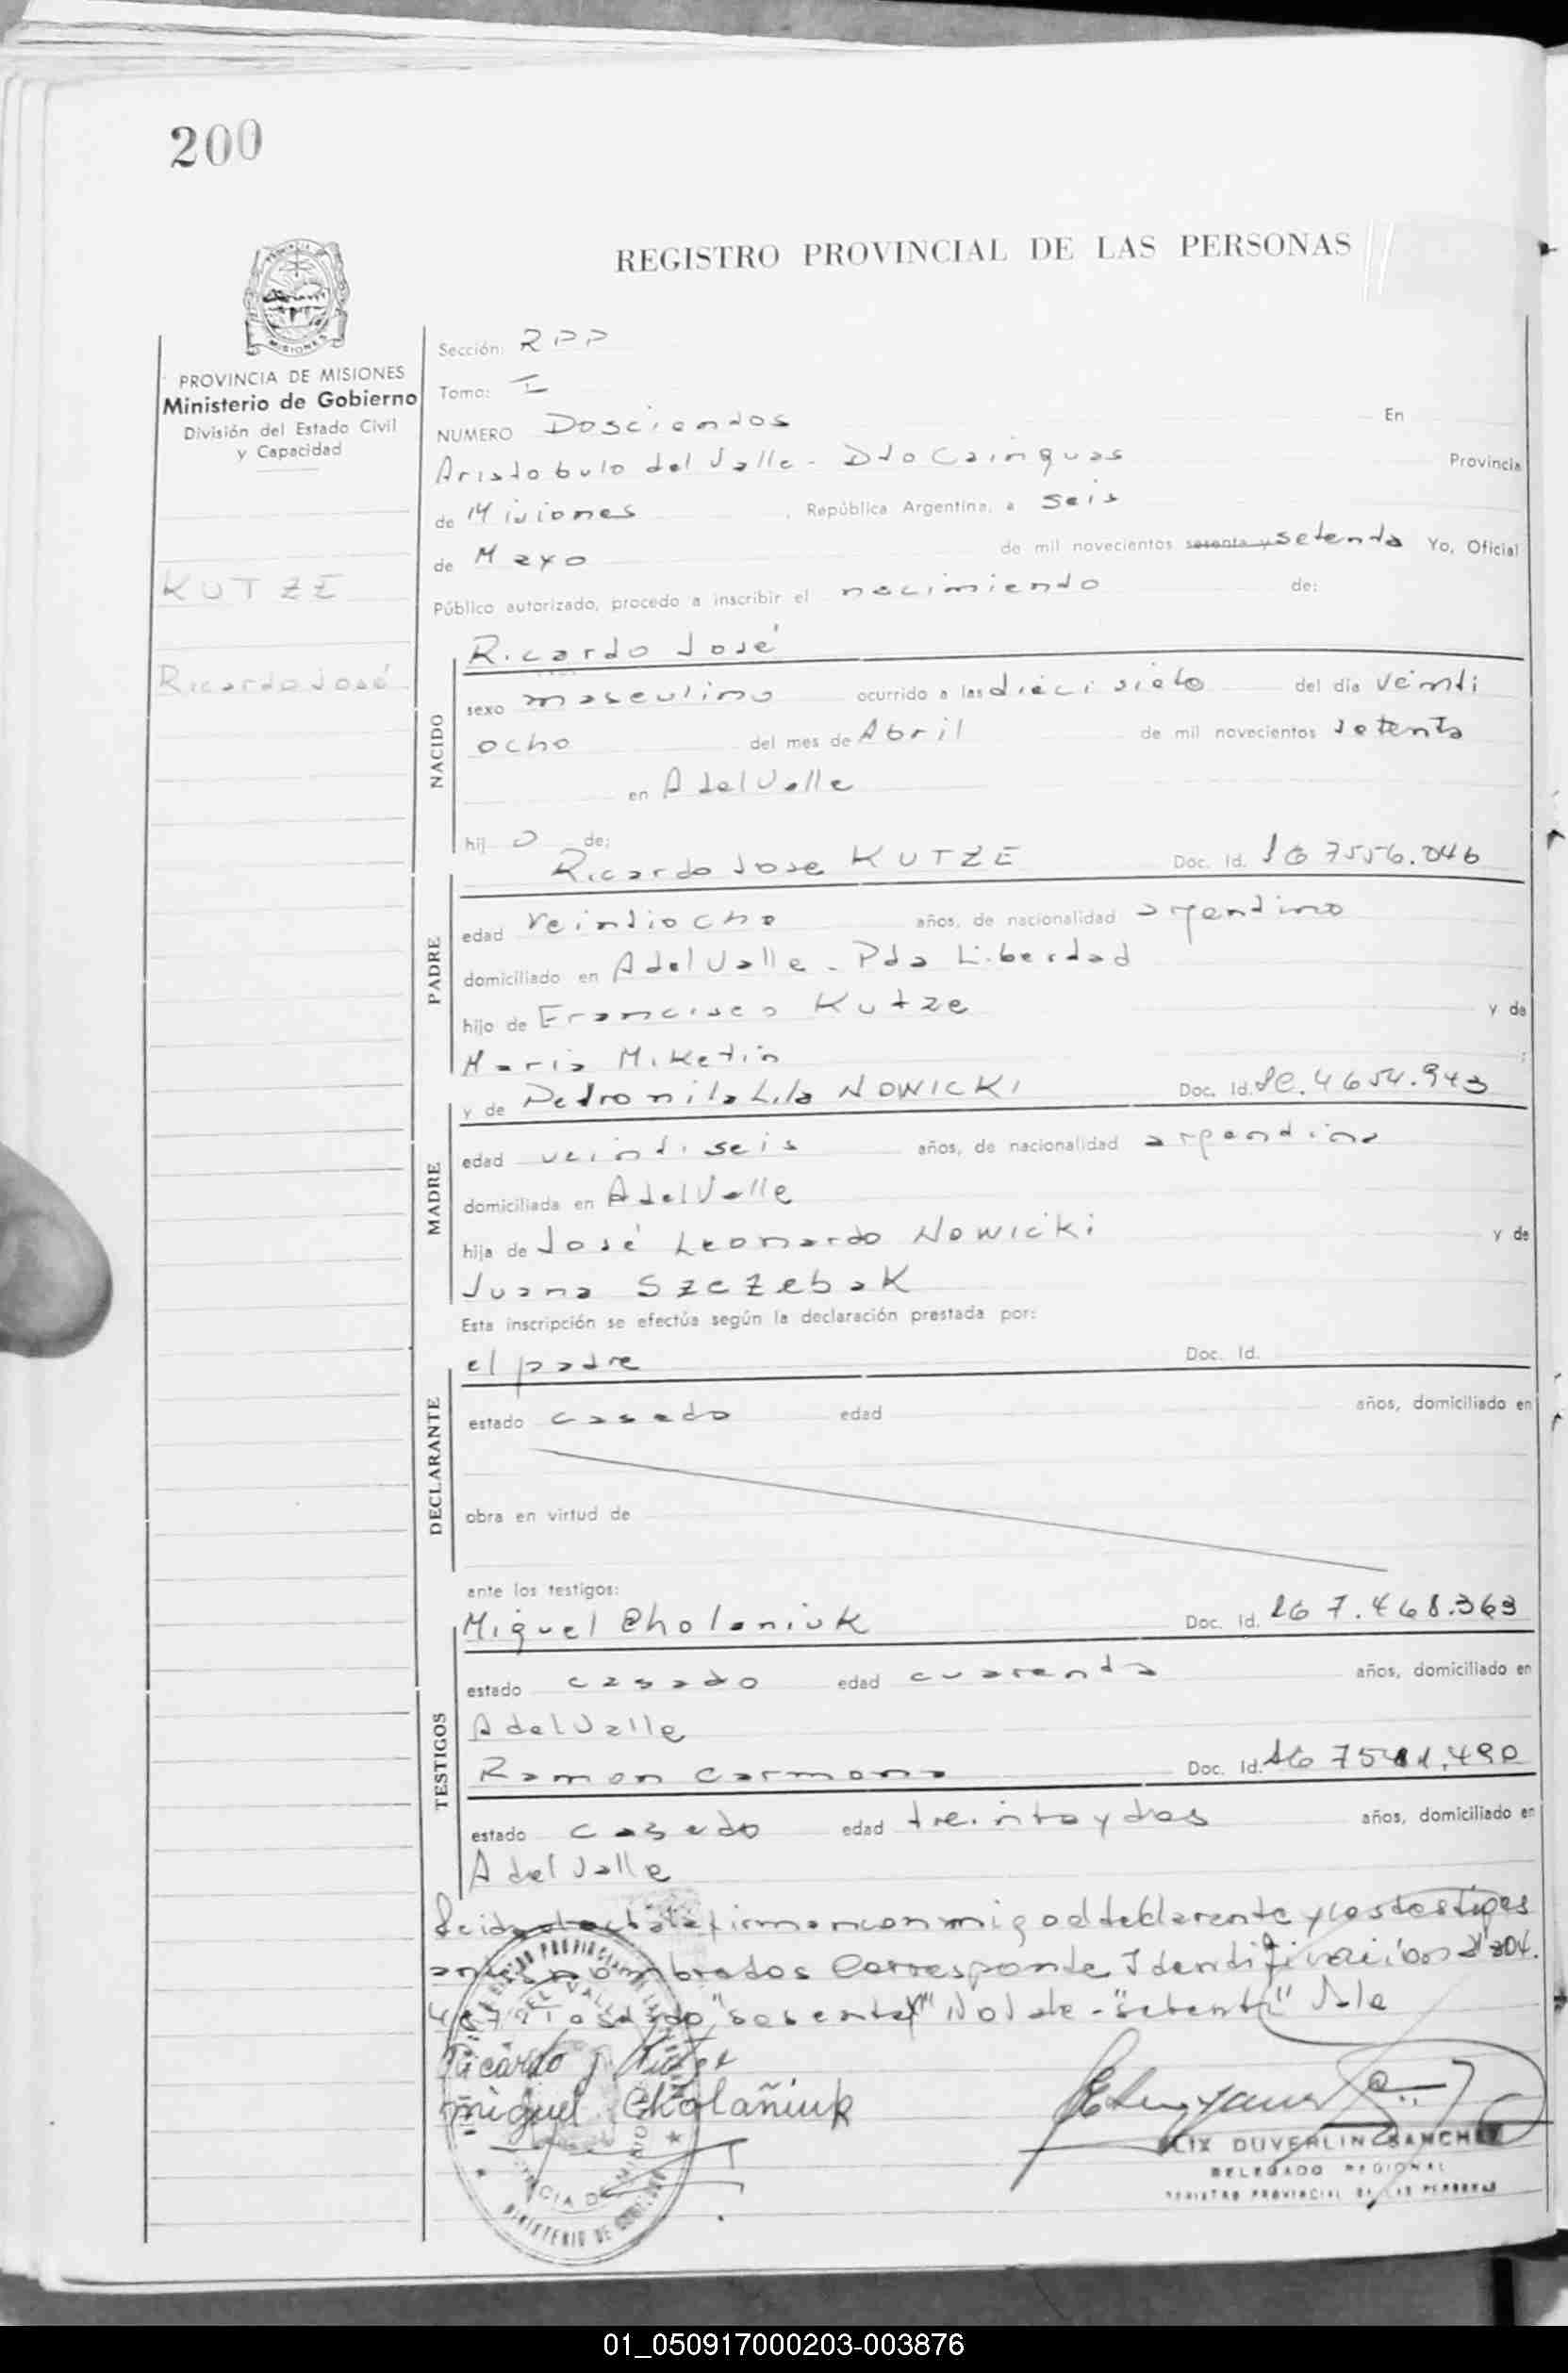 200
REGISTRO PROVINCIAL DE LAS PERSONAS
MISIONES
PROVINCIA DE MISIONES
Ministerio de Gobierno
División del Estado Civil
y Capacidad
KUTZE
Ricardo José
Sección: RPP
Tomo: I
NUMERO Doscientos En
Aristobulo del Valle - Dto Cainguas Provincia
de Misiones, República Argentina, a seis
de Mayo de mil novecientos sesenta y setenta Yo, Oficial
Público autorizado, procedo a inscribir el nacimiento de:
NACIDO
Ricardo José
sexo masculino ocurrido a las dieci siete del día veinti
ocho del mes de Abril de mil novecientos setenta
en A del Valle
hij o de:
PADRE
Ricardo Jose KUTZE Doc. Id. 7556.046
edad veintiocho años, de nacionalidad argentino
domiciliado en A del Valle - Pda Libertad
hijo de Francisco Kutze y de
Maria Miketin ;
MADRE
y de Petronila Lila NOWICKI Doc. Id. 4654.943
edad veinti seis años, de nacionalidad argentina
domiciliada en A del Valle
hija de José Leonardo Nowicki y de
Juana Szczebak
Esta inscripción se efectúa según la declaración prestada por:
DECLARANTE
el padre Doc. Id.
estado casado edad años, domiciliado en
obra en virtud de
ante los testigos:
TESTIGOS
Miguel Cholaniuk Doc. Id. 7.468.363
estado casado edad cuarenta años, domiciliado en
A del Valle
Ramon Carmona Doc. Id.
estado casado edad treinta y dos años, domiciliado en
A del Valle
Leida el acta la firman conmigo el declarante y los testigos
antes nombrados Corresponde Identificación
Testado "sesenta y" No vale - "setenta" Vale
Ricardo J Kutze
miguel Cholañiuk
DUVERLIN SANCHEZ
DELEGADO REGIONAL
REGISTRO PROVINCIAL DE LAS PERSONAS
01_050917000203-003876